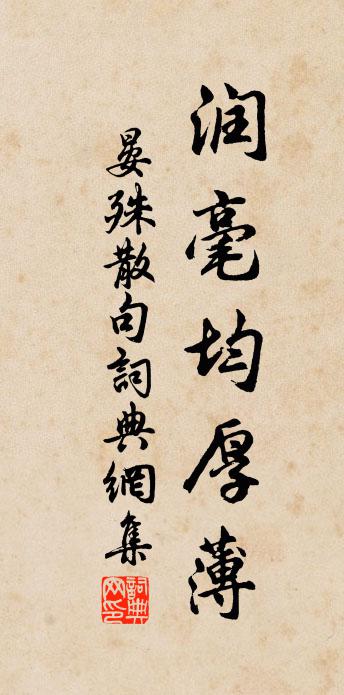 润毫均厚薄
晏殊散句詞典網集
詞典网印